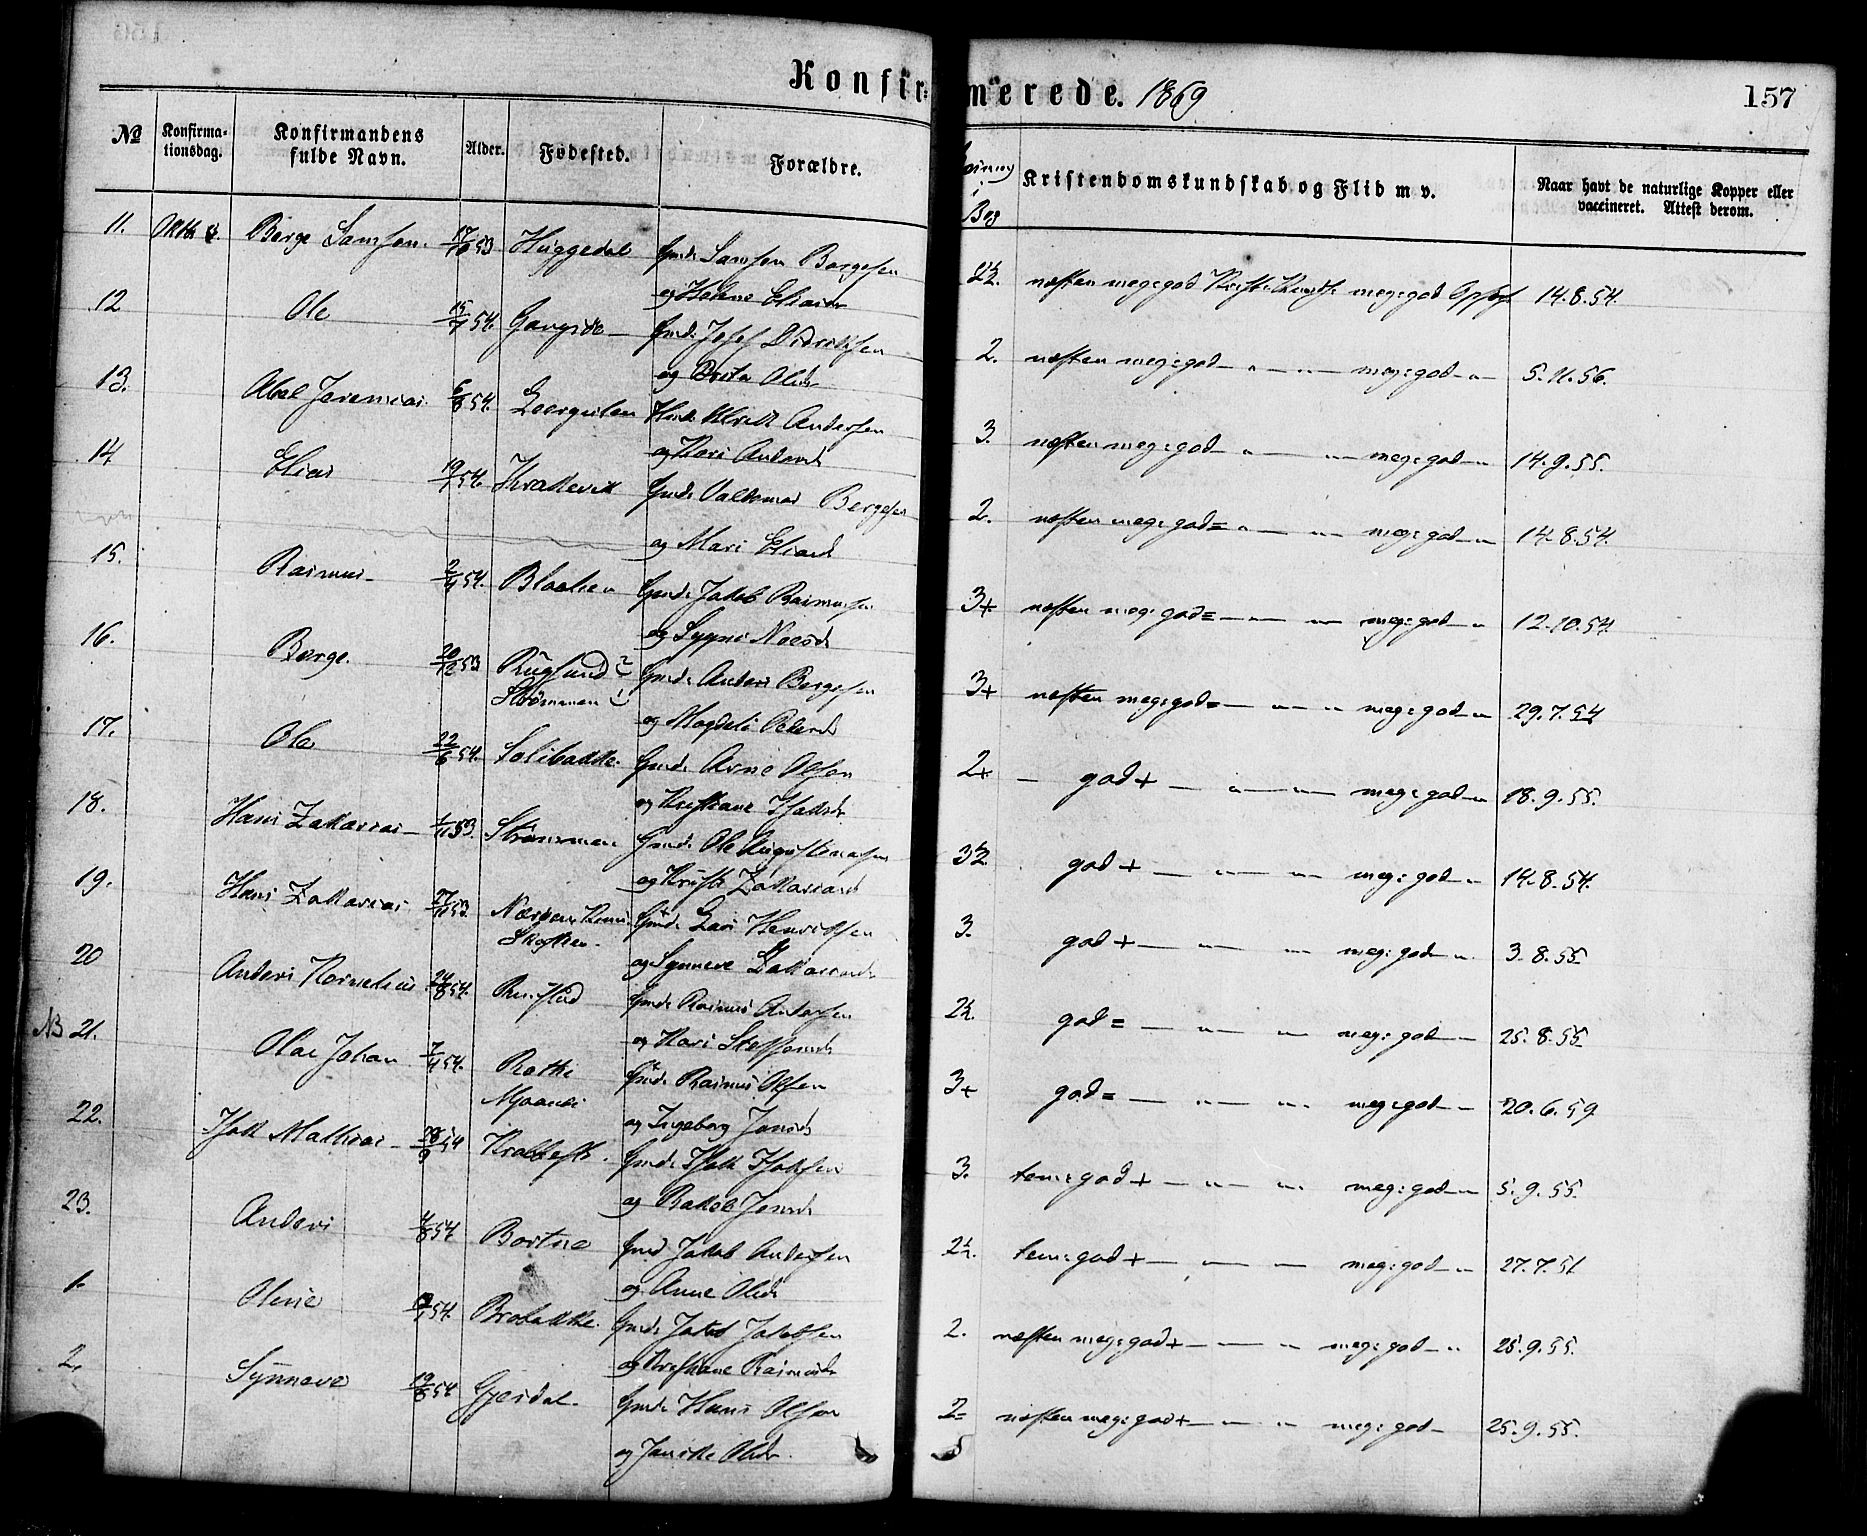 Konfirmerede. 1869
157
№
Konfirma-
tionsdag.
Konfirmandens
fulde Navn.
Alder.
Fødested.
Forældre.
i
Bog
Kristendomskundskab og Flid m v.
Naar havt de naturlige Kopper eller
vaccineret. Attest derom.
11. Oktbr Børge Samson. 17/10 53 Huggedal Gmd. Samson Børgesen
og Helene Eliasd
næsten meg: god Krist. Kundsk. meg: god Opførs 14.8.54.
12 Ole 15/1 54. Gmd. Josef Didriksen
og Brita Olsd
2. næsten meg: god — " — " — meg: god — " — 5.11.56.
13. Abel Jeremias. 6/8 54. Andersen
og Kari Andersd
3. næsten meg: god — " — " — meg: god — " 14.9.55.
14 Elias 19/1 54. Krakevik Gmd. Valdemar Børgesen
og Mari Eliasd
2. næsten meg: god = " — " — meg: god — " 14.8.54.
15. Rasmus 2/4 54. Gmd. Jakob Rasmusen
og Sygni Nilsd
3+ næsten meg: god = — " — " — meg: god — " 12.10.54.
16. Børge. 20/12 53 Ruglund 2
Strømmen 1
Gmd. Anders Børgesen
og Magdeli Pedersd
3+ næsten meg: god = — " — " meg: god — " 29.7.54
17. Ole 22/6 54. Solibakke. Gmd. Arne Olsen
og Kristiane Isaksd.
2+ — god + — " — " — meg: god — " 18.9.55.
18. Hans Zakarias — 1/11 53. Strømmen Gmd. Ole Augustinusen
og Kristi Zakariasd
god + — " — " — meg: god — " 14.8.54.
19. Hans Zakarias 27/11 53. Gmd. Lars Henriksen
og Synneve Zakariasd
3. god + — " — " — meg: god — " 3.8.55
20 Anders Kornelius 24/8 54. Rugstad Gmd. Rasmus Andersen
og Kari Steffensd
god = — " — " — meg: god — " 25.8.55
NB 21. Olai Johan 7/4 54. Gmd. Rasmus Olsen
og Ingeborg Jonsd
3+ god = — " — " — meg: god — " 20.6.59
22. Isak Mathias — 28/9 54 Krabbest. Gmd. Isak Isaksen
og Rakel Jonsd
3. tem: god + — " — " — meg: god — " 5.9.55.
23. Anders 4/8 54 Bortne Gmd Jakob Andersen
og Anne Olsd
tem: god + — " — " — meg: god — " 27.7.51
1. Olene 54. Brobakke. Gmd. Jakob Jakobsen
og Kristiane Rasmusd
2. næsten meg: god + — " — " meg: god — " 25.9.55.
2. Synneve 19/8 54 Gjesdal. Gmd. Hans Olsen
og Janikke Olsd.
2= næsten meg: god + — " — " meg: god — 25.9.55.